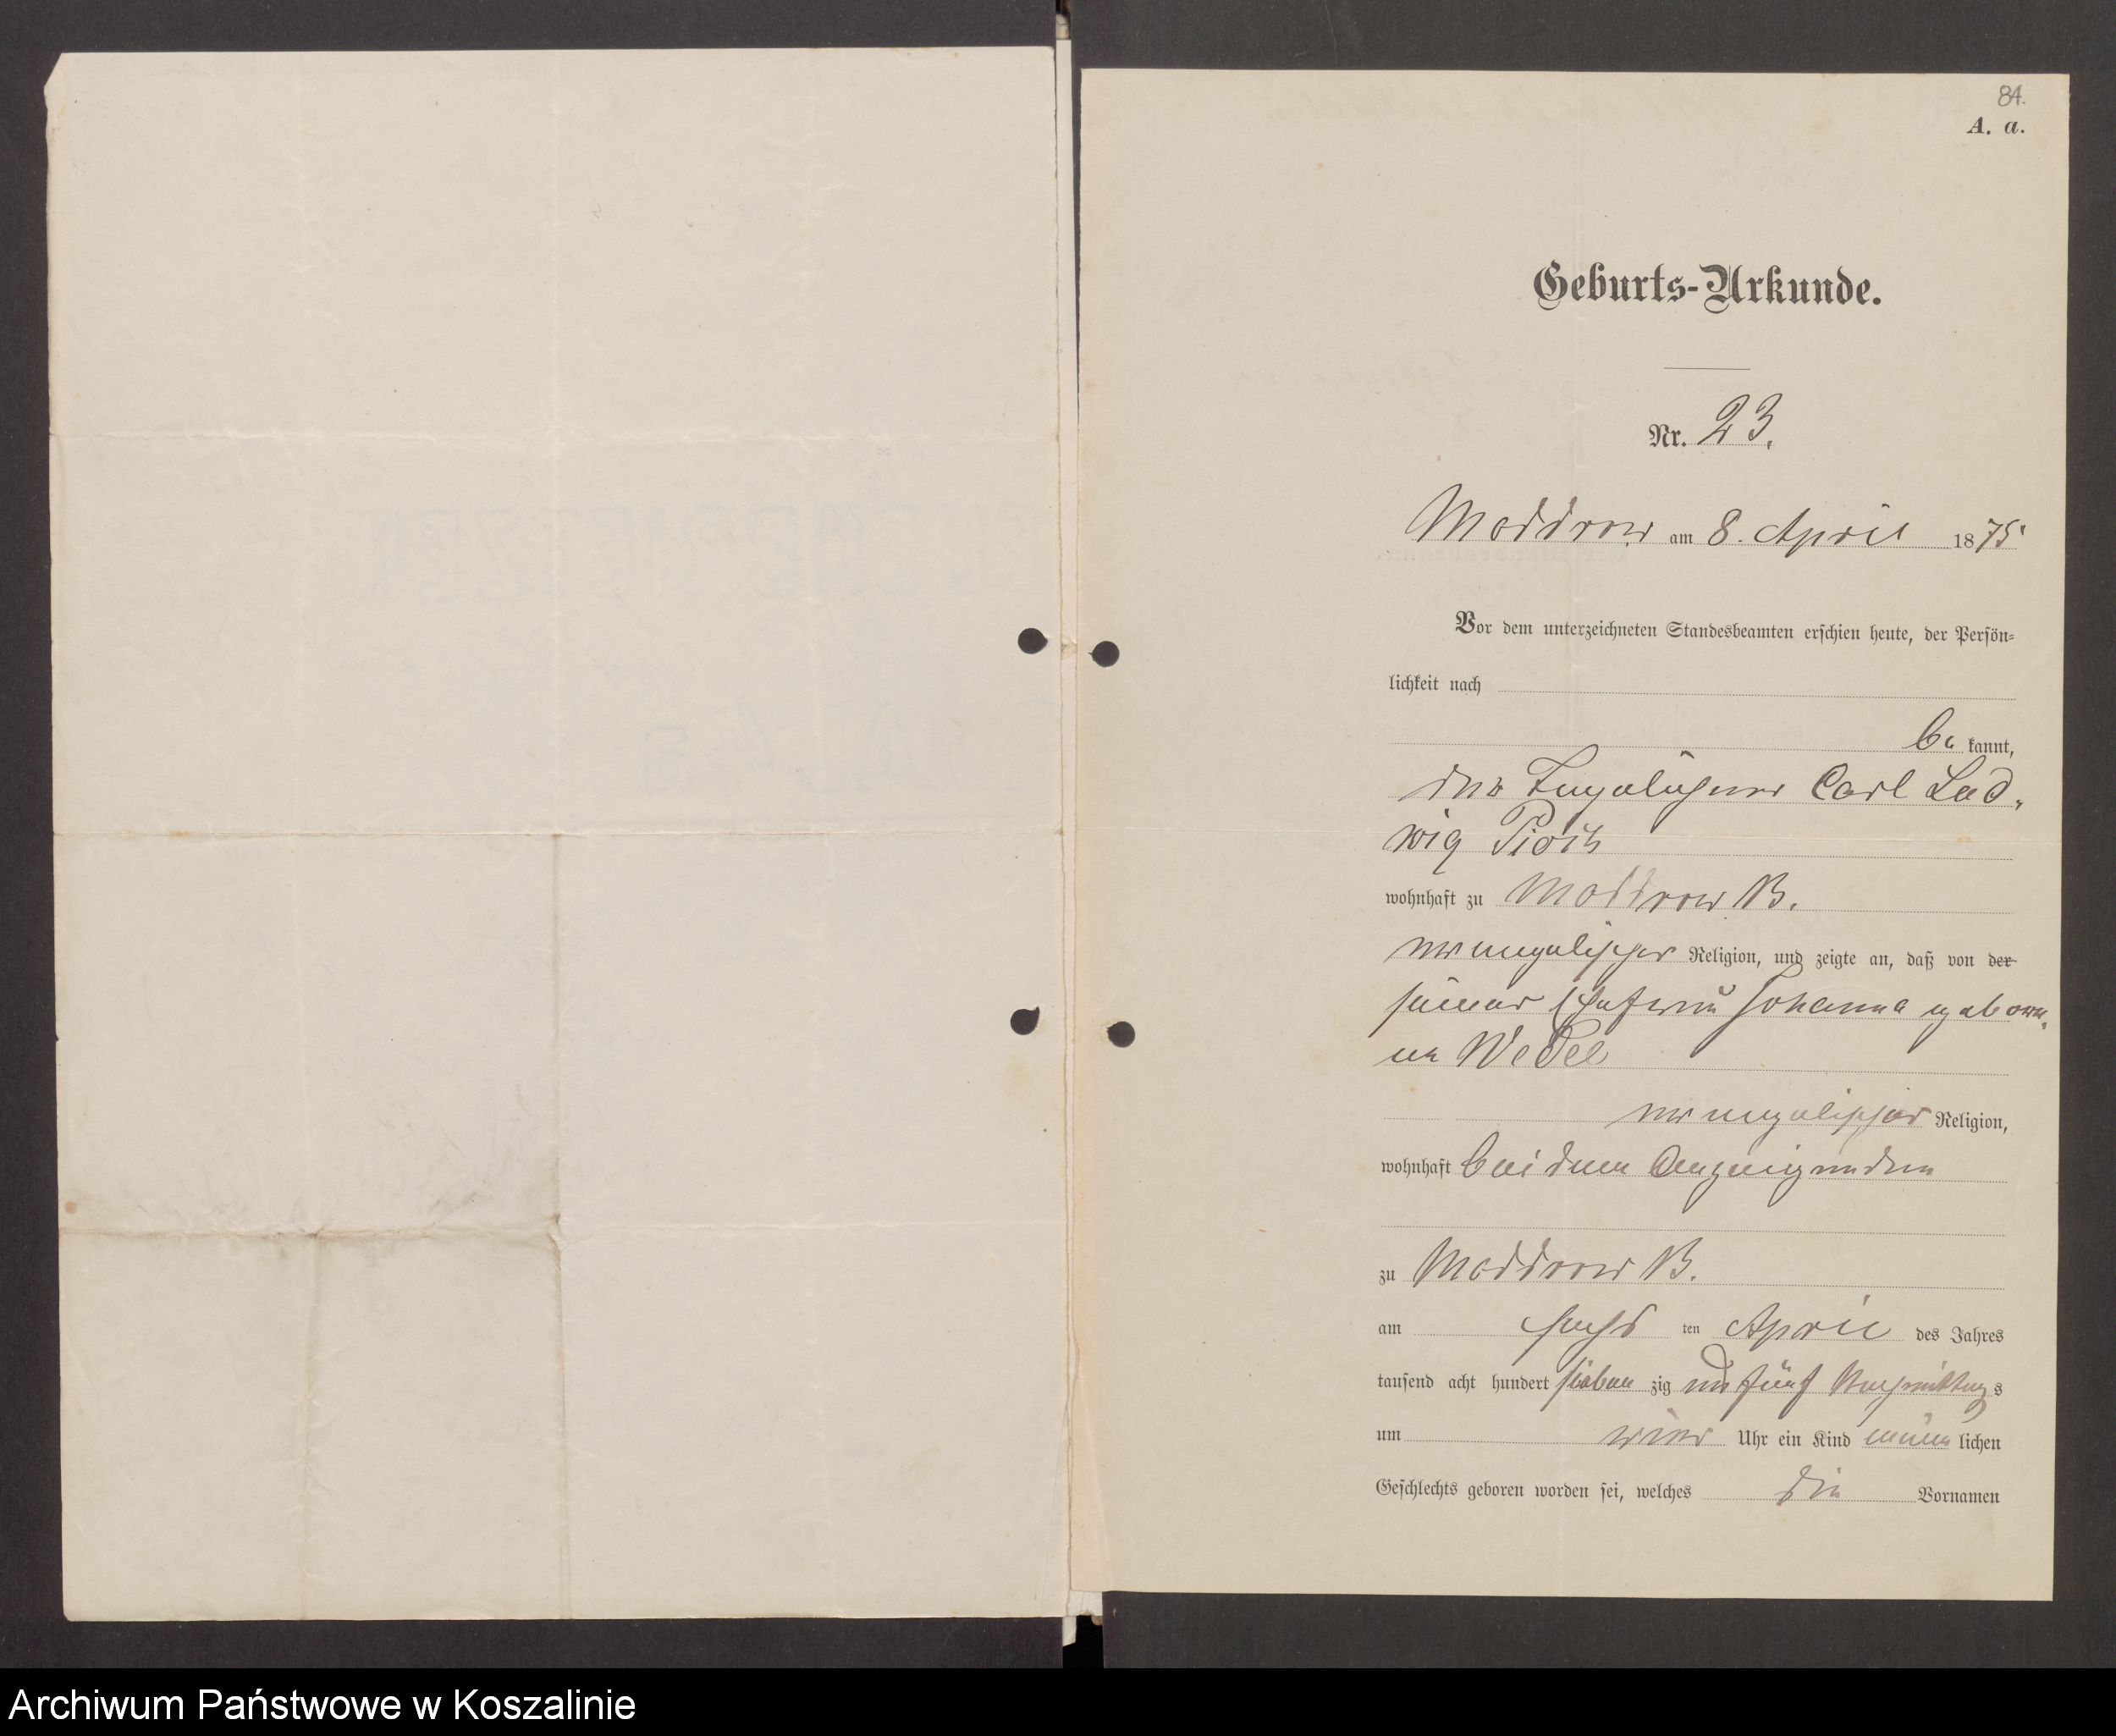 84.
A. a.
Geburts-Urkunde.
Nr. 23.
Moddrow am 8. April 1875
Vor dem unterzeichneten Standesbeamten erschien heute, der Persön-
lichkeit nach
be kannt,
der Tagelöhner Carl Lud-
wig
wohnhaft zu Moddrow B.
evangelischer Religion, und zeigte an, daß von der
seiner Ehefrau Johanna gebore-
ne Wedel
evangelischer Religion,
wohnhaft bei dem Anzeigenden
zu Moddrow B.
am sechs ten April des Jahres
tausend acht hundert sieben zig und fünf Nachmittag s
um vier Uhr ein Kind männ lichen
Geschlechts geboren worden sei, welches die Vornamen
Archiwum Państwowe w Koszalinie